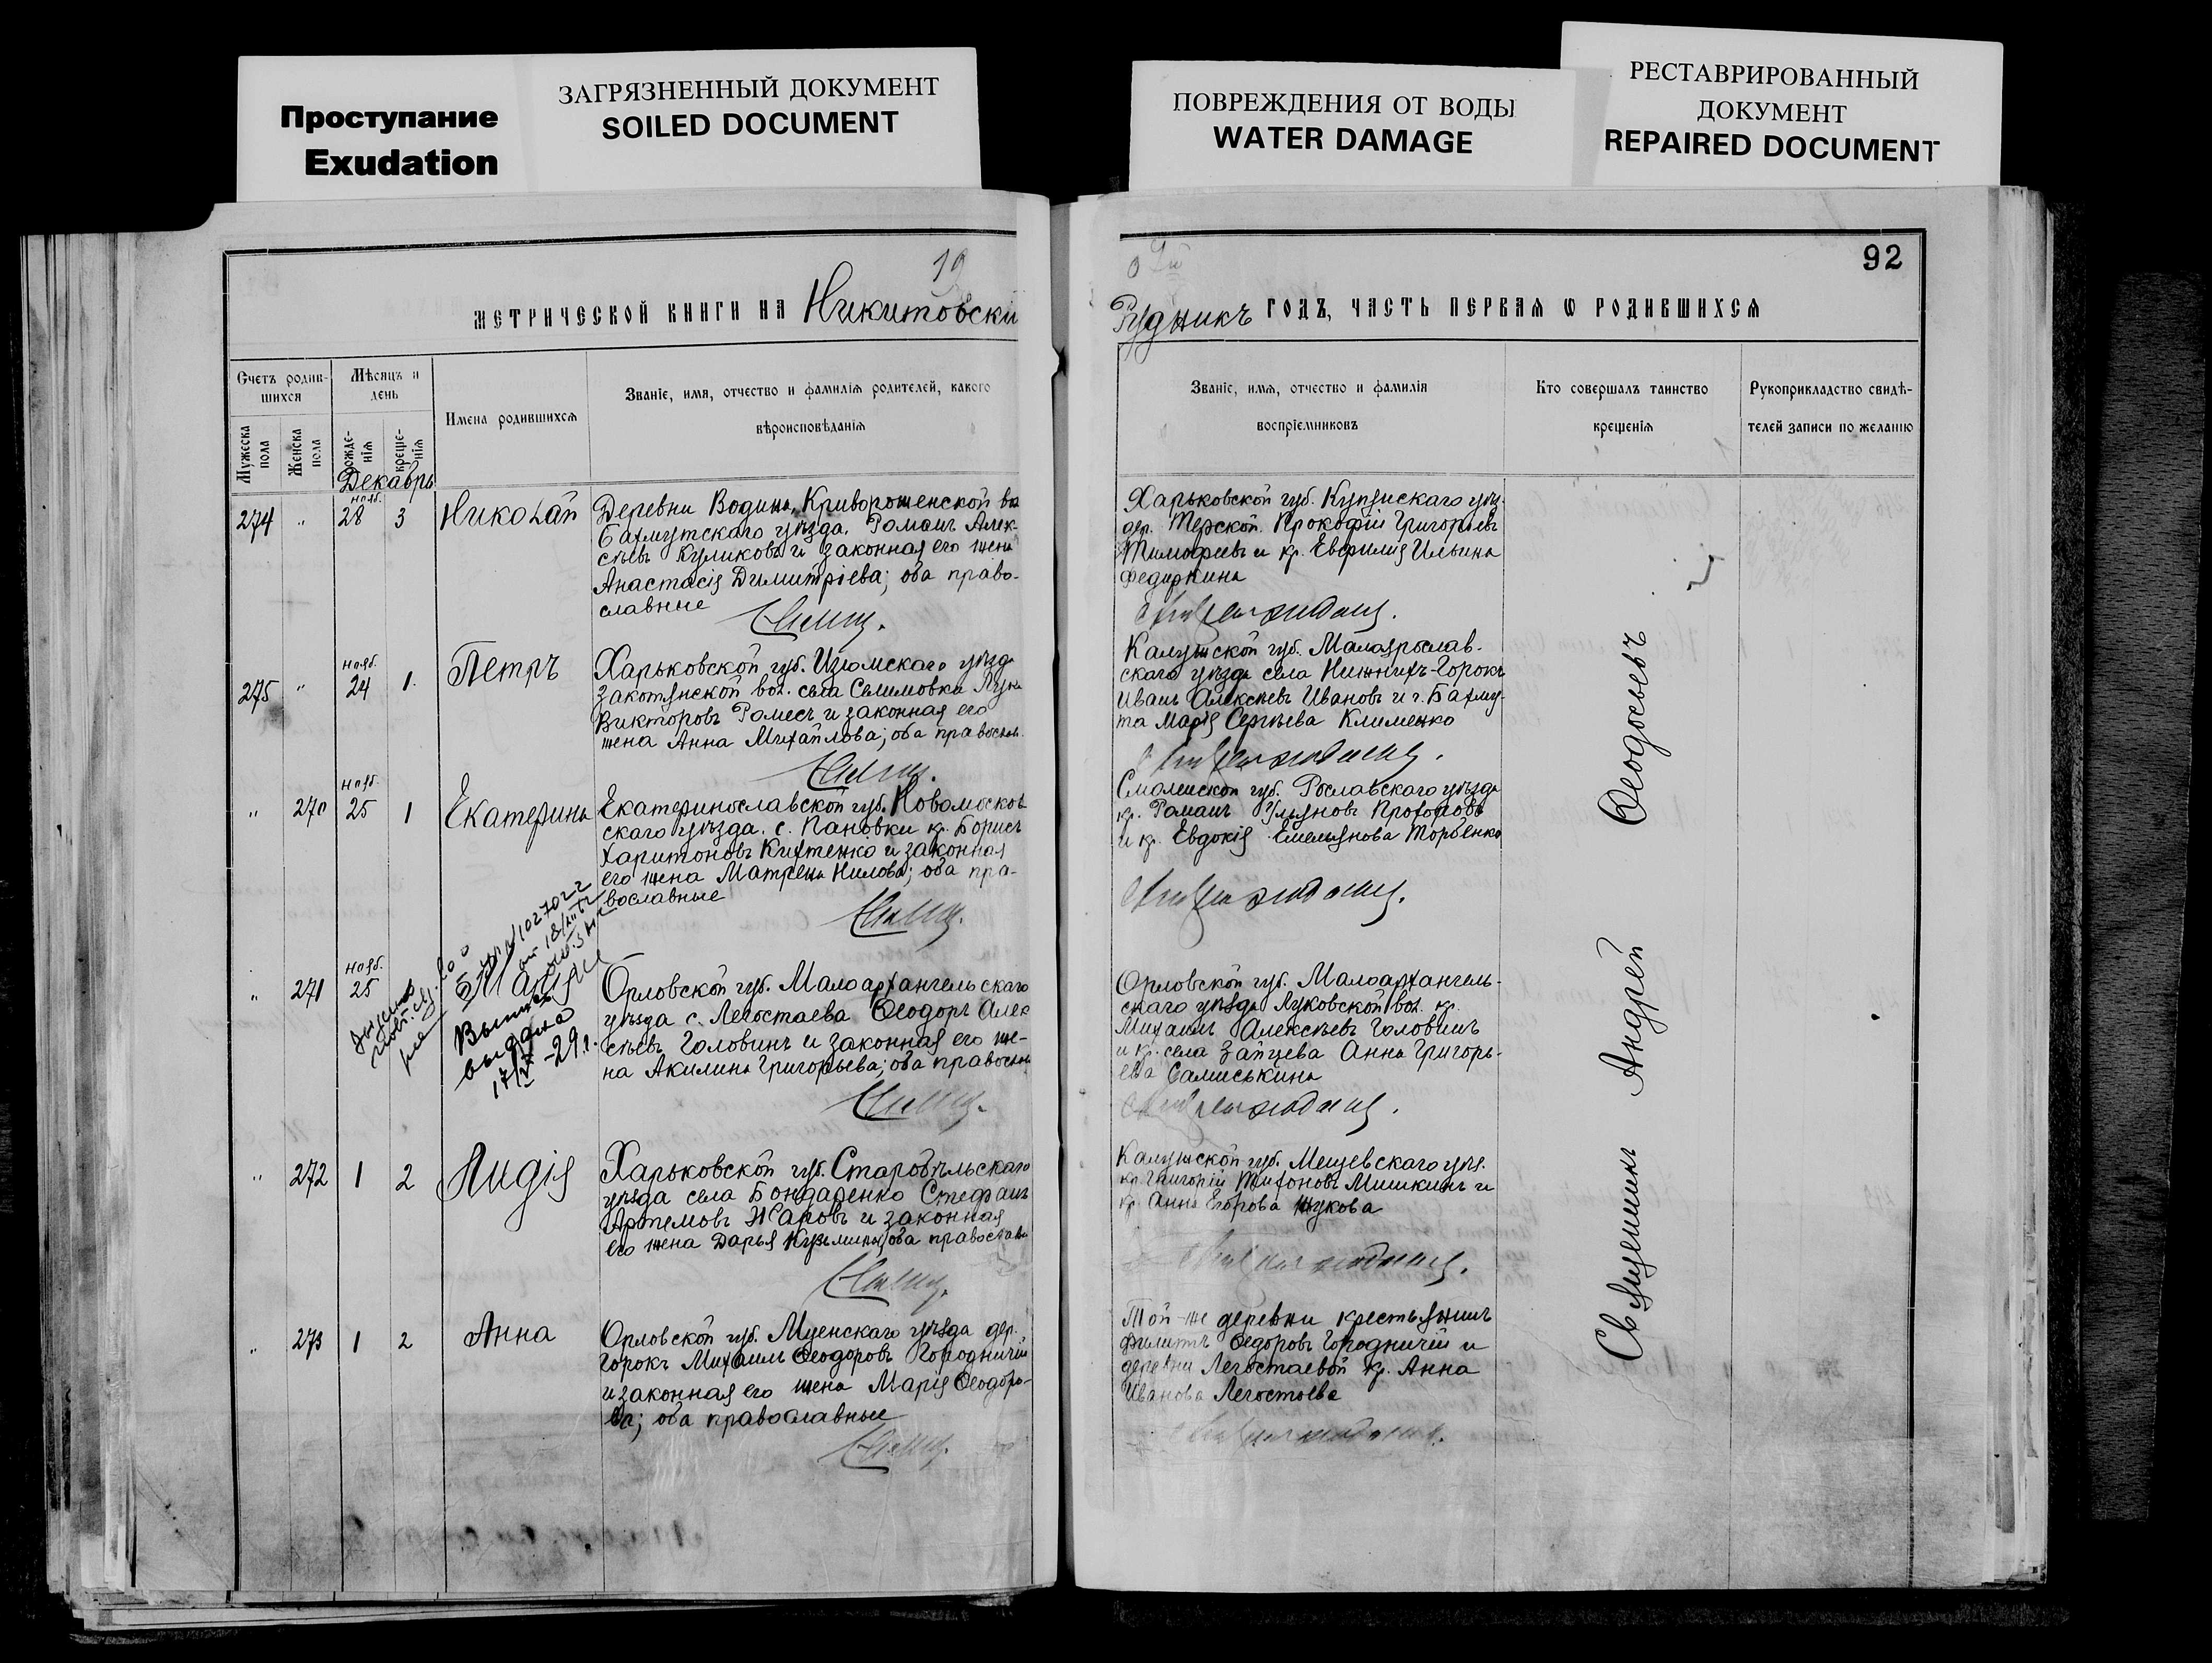 Проступание
Exudation
ЗАГРЯЗНЕННЫЙ ДОКУМЕНТ
SOILED DOCUMENT
ПОВРЕЖДЕНИЯ ОТ ВОДЫ
WATER DAMAGE
РЕСТАВРИРОВАННЫЙ
ДОКУМЕНТ
REPAIRED DOCUMENT
19
92
МЕТРИЧЕСКОЙ КНИГИ НА Никитовскій
Рудникъ ГОДЪ, ЧАСТЬ ПЕРВАЯ Ѡ РОДИВШИХСЯ
Счетъ родив-
шихся
Мѣсяцъ и
день
Мужеска
пола
Женска
пола
рожде-
нія
креще-
нія
Имена родившихся
Званіе, имя, отчество и фамилія родителей, какого
вѣроисповѣданія
Званіе, имя, отчество и фамилія
воспріемниковъ
Кто совершалъ таинство
крещенія
Рукоприкладство свидѣ-
телей записи по желанію
Декабрь
274 " нояб. 28 3 Николай
Деревни Водина, Криворожской во
Бахмутскаго уѣзда, Романъ Алек-
сѣевъ Куликовъ и законная его жена
Анастасія Димитріева; оба право-
славные
Харьковской губ. Купянскаго уѣз.
дер. Терской Прокофій Григорьевъ
Тимофеевъ и кр. Евфимія Ильина
Федяркина
275 " нояб. 24 1. Петръ
Харьковской губ. Изюмскаго уѣзд
вол. села Селимовка Лука
Викторовъ Ромесъ и законная его
жена Анна Михайлова; оба правослов.
Калужской губ. Малоярослав-
скаго уѣзда села Нижнихъ-Горокъ
Иванъ Алексѣевъ Ивановъ и г. Бахму-
та Марія Сергѣева Клименко
" 270 нояб. 25 1 Екатерина
Екатеринославской губ. Новомосков
скаго уѣзда. с. Пановки кр. Борисъ
Харитоновъ Кихтенко и законная
его жена Матрена Нилова; оба пра-
вославные
Смоленской губ. Рославскаго уѣзда
кр. Романъ Ульяновъ Прохоровъ
и кр. Евдокія Емельянова Торбенко
" 271 нояб. 25
Марія
1027022
Выпись
выдана
17/V-29г.
Орловской губ. Малоархангельскаго
уѣзда с. Легостаева Ѳеодоръ Алек
сѣевъ Головинъ и законная его же-
на Акилина Григорьева; оба правослов
Орловской губ. Малоархангель-
скаго уѣзда Луковской вол. кр.
Михаилъ Алексѣевъ Головинъ
и кр. села Зайцева Анна Григорь-
ева Самиськина
" 272 1 2 Лидія
Харьковской губ. Старобѣльскаго
уѣзда села Бондаренко Стефанъ
Артемовъ Жаровъ и законная
его жена Дарья Кузьмина; оба православн
Калужской губ. Мещевскаго уѣз.
кр. Григорій Тихоновъ Мишкинъ и
кр. Анна Егорова Жукова
" 273 1 2 Анна
Орловской губ. Мценскаго уѣзда дер.
Горокъ Михаилъ Ѳеодоровъ Городничій
и законная его жена Марія Ѳеодоро-
ва; оба православные
Той-же деревни крестьянинъ
Филиппъ Ѳедоровъ Городничій и
деревни Легостаевой кр. Анна
Иванова Легостаева
Священникъ Андрей Ѳеодосьевъ